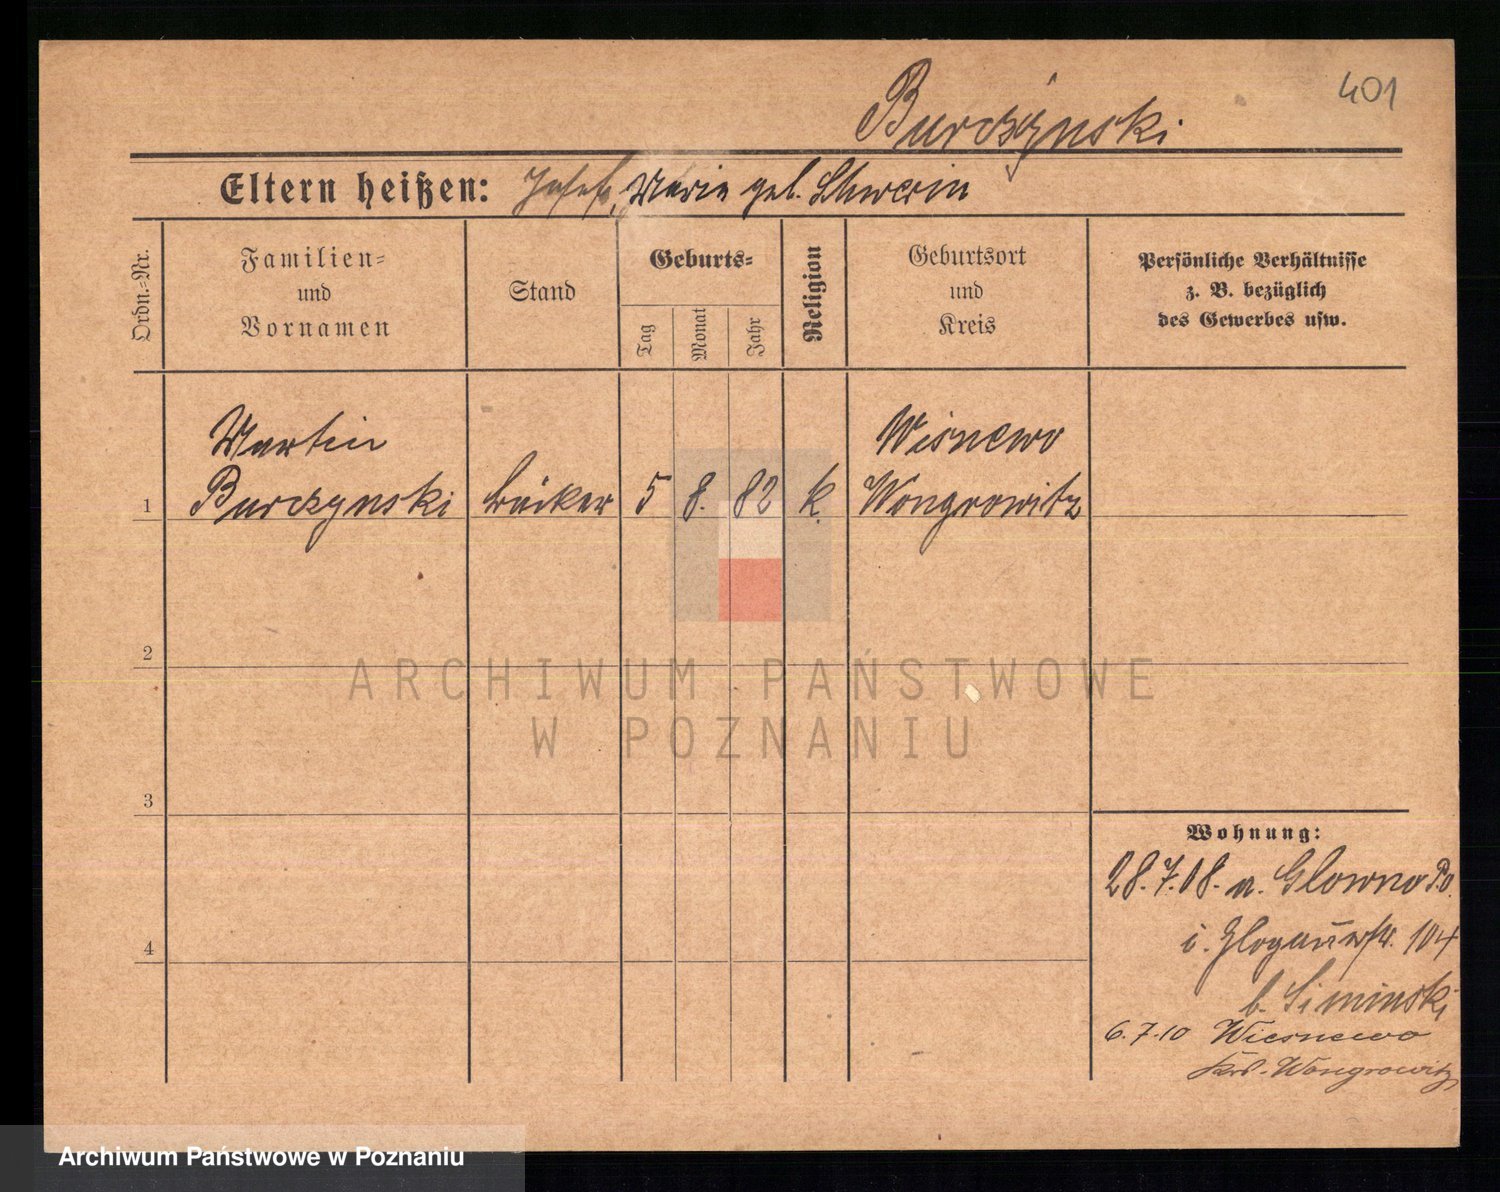 401
Burczynski
Eltern heißen: Josef, Marie geb. Schwerin
Ordn.-Nr.
Familien-
und
Vornamen
Stand
Geburts-
Tag
Monat
Jahr
Religion
Geburtsort
und
Kreis
Persönliche Verhältnisse
z. B. bezüglich
des Gewerbes usw.
Martin
Wisnewo
1 Burczynski Bäcker 5 8. 82 k. Wongrowitz
2
ARCHIWUM PAŃSTWOWE
W POZNANIU
3
Wohnung:
28.7.08. a. Glowno
4
i. Glogauerstr. 104
b. Siminski
6.7.10 Wiesnewo
Krs. Wongrowitz
Archiwum Państwowe w Poznaniu